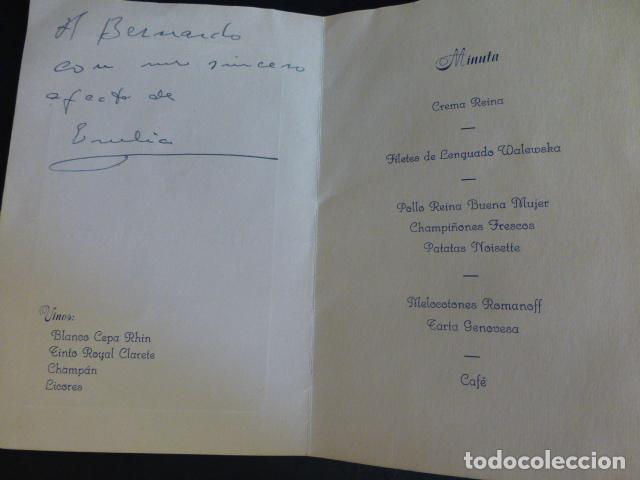 A Bernardo
con un sincero
afecto de
Emilia
Vinos:
Blanco Cepa Rhin
Tinto Royal Clarete
Champán
Licores
Minuta
Crema Reina
—
Filetes de Lenguado Walewska
—
Pollo Reina Buena Mujer
Champiñones Frescos
Patatas Noisette
—
Melocotones Romanoff
Tarta Genovesa
—
Café
todocoleccion.net